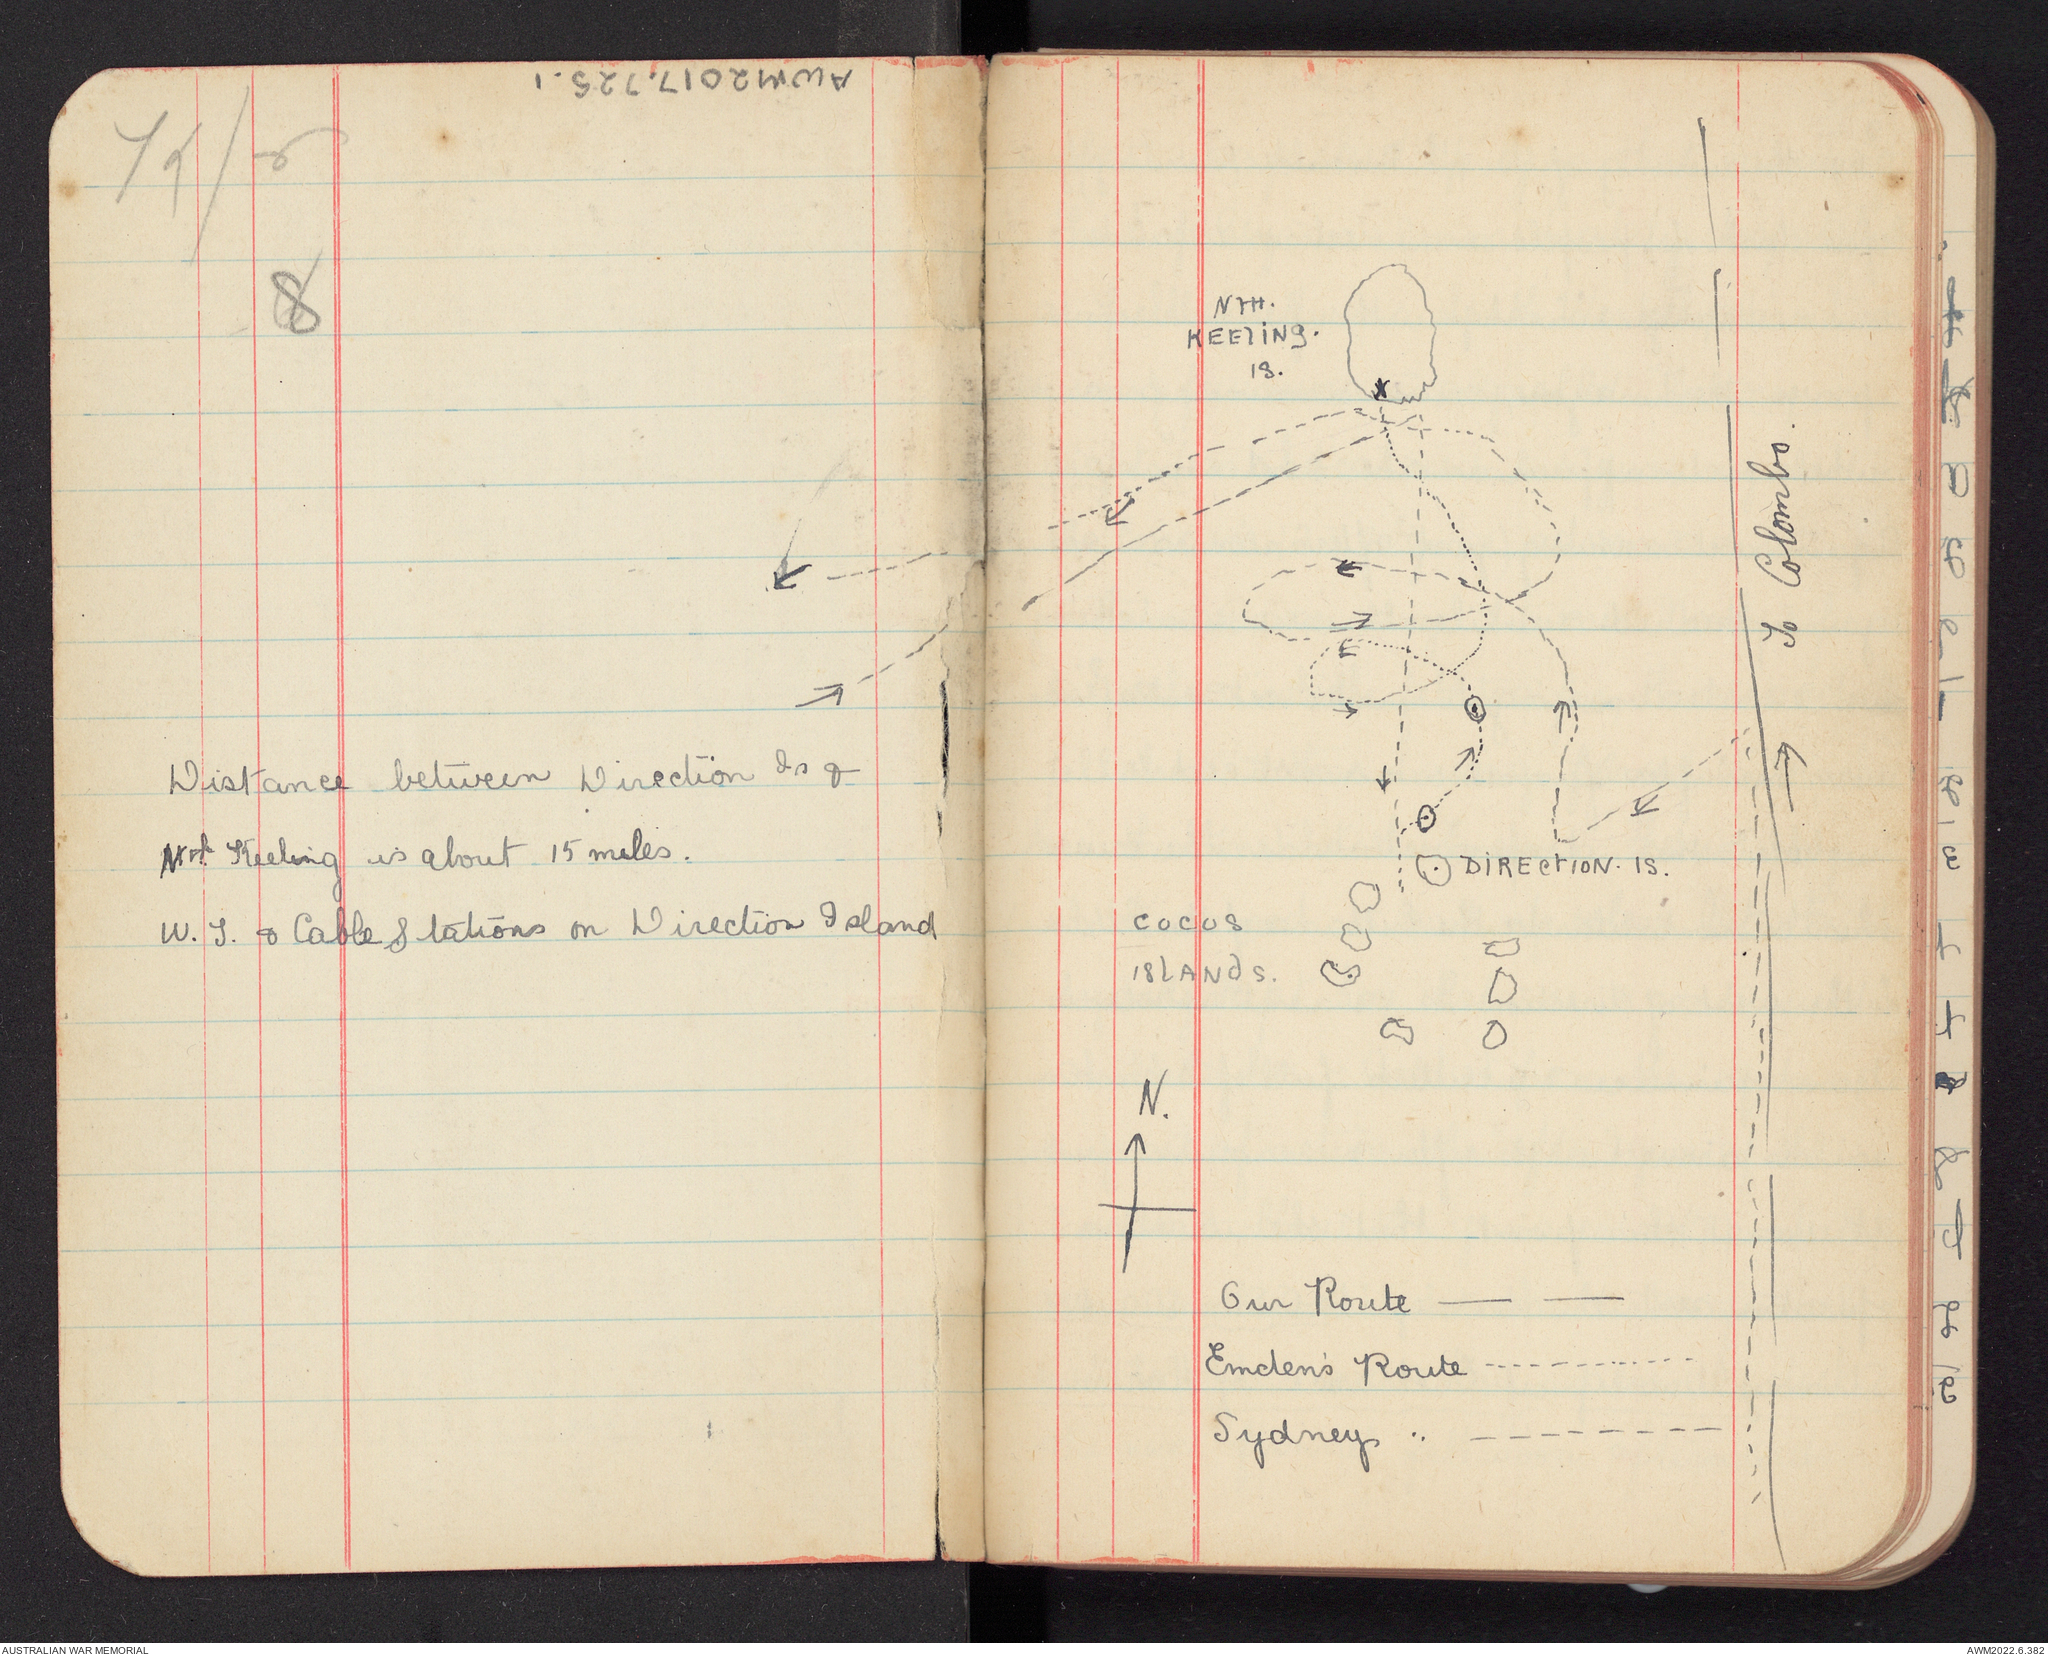 AWM2017.725.1
8
Distance between Direction Is &
Nth Keeling is about 15 miles.
W.T. & Cable Stations on Direction Island
NTH.
KEELING.
IS.
To Colombo.
DIRECTION. IS.
COCOS
ISLANDS.
N.
Our Route
Emden's Route
Sydneys "
AUSTRALIAN WAR MEMORIAL
AWM2022.6.382